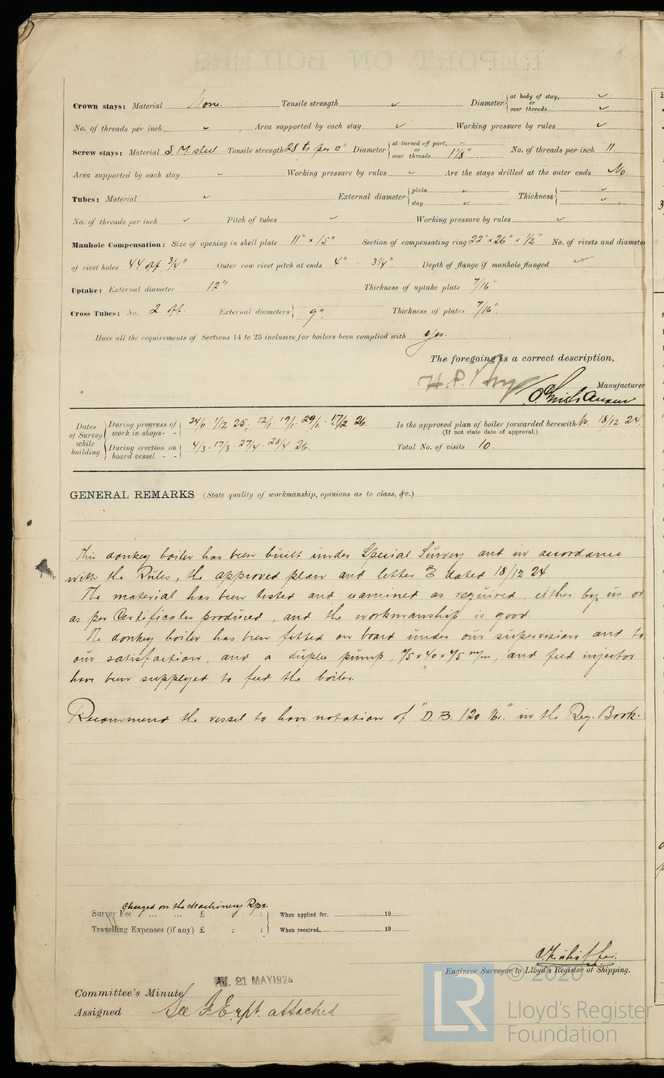 REPORT ON BOILERS
Crown stays: Material None Tensile strength ✓ Diameter { at body of stay, ✓ or over threads ✓
No. of threads per inch ✓ Area supported by each stay ✓ Working pressure by rules ✓
Screw stays: Material S. M. steel Tensile strength 28 to per □" Diameter { at turned off part, or over threads 1 1/8" No. of threads per inch 11
Area supported by each stay ✓ Working pressure by rules ✓ Are the stays drilled at the outer ends No.
Tubes: Material ✓ External diameter { plain ✓ stay ✓ Thickness { ✓ ✓
No. of threads per inch ✓ Pitch of tubes ✓ Working pressure by rules ✓
Manhole Compensation: Size of opening in shell plate 11" × 15" Section of compensating ring 22" × 26" × 1/2" No. of rivets and diameter
of rivet holes 44 off 3/4" Outer row rivet pitch at ends 4" - 3 1/4" Depth of flange if manhole flanged ✓
Uptake: External diameter 12" Thickness of uptake plate 7/16"
Cross Tubes: No. 2 off. External diameters { 9" Thickness of plates 7/16"
Have all the requirements of Sections 14 to 23 inclusive for boilers been complied with Yes.
The foregoing is a correct description,
Manufacturer
Dates of Survey while building { During progress of work in shops - - 1/12 25, 12/1 19/1 29/1 17/2 26.
Is the approved plan of boiler forwarded herewith No 18/12 24
(If not state date of approval.)
During erection on board vessel - - 4/3 17/3 27/4 28/4 26. Total No. of visits 10.
GENERAL REMARKS (State quality of workmanship, opinions as to class, &c.)
This donkey boiler has been built under Special Survey and in accordance
with the Rules, the approved plan and letter dated 18/12 24.
The material has been tested and examined as required either by us or
as per Certificates produced, and the workmanship is good.
The donkey boiler has been fitted on board under our supervision and to
our satisfaction, and a duplex pump, × 40 × m/m, and feed injector
have been supplyed to feed the boiler.
Recommend the vessel to have notation of "D. B. 120 lb." in the Reg. Book.
Charged on the Machinery Rpt.
Survey Fee ... ... £ : : When applied for, 19
Travelling Expenses (if any) £ : : When received, 19
Engineer Surveyor to Lloyd's Register of Shipping.
21 MAY 1926
Committee's Minute
Assigned See F.E. rpt. attached
© 2020
LR
Lloyd's Register
Foundation